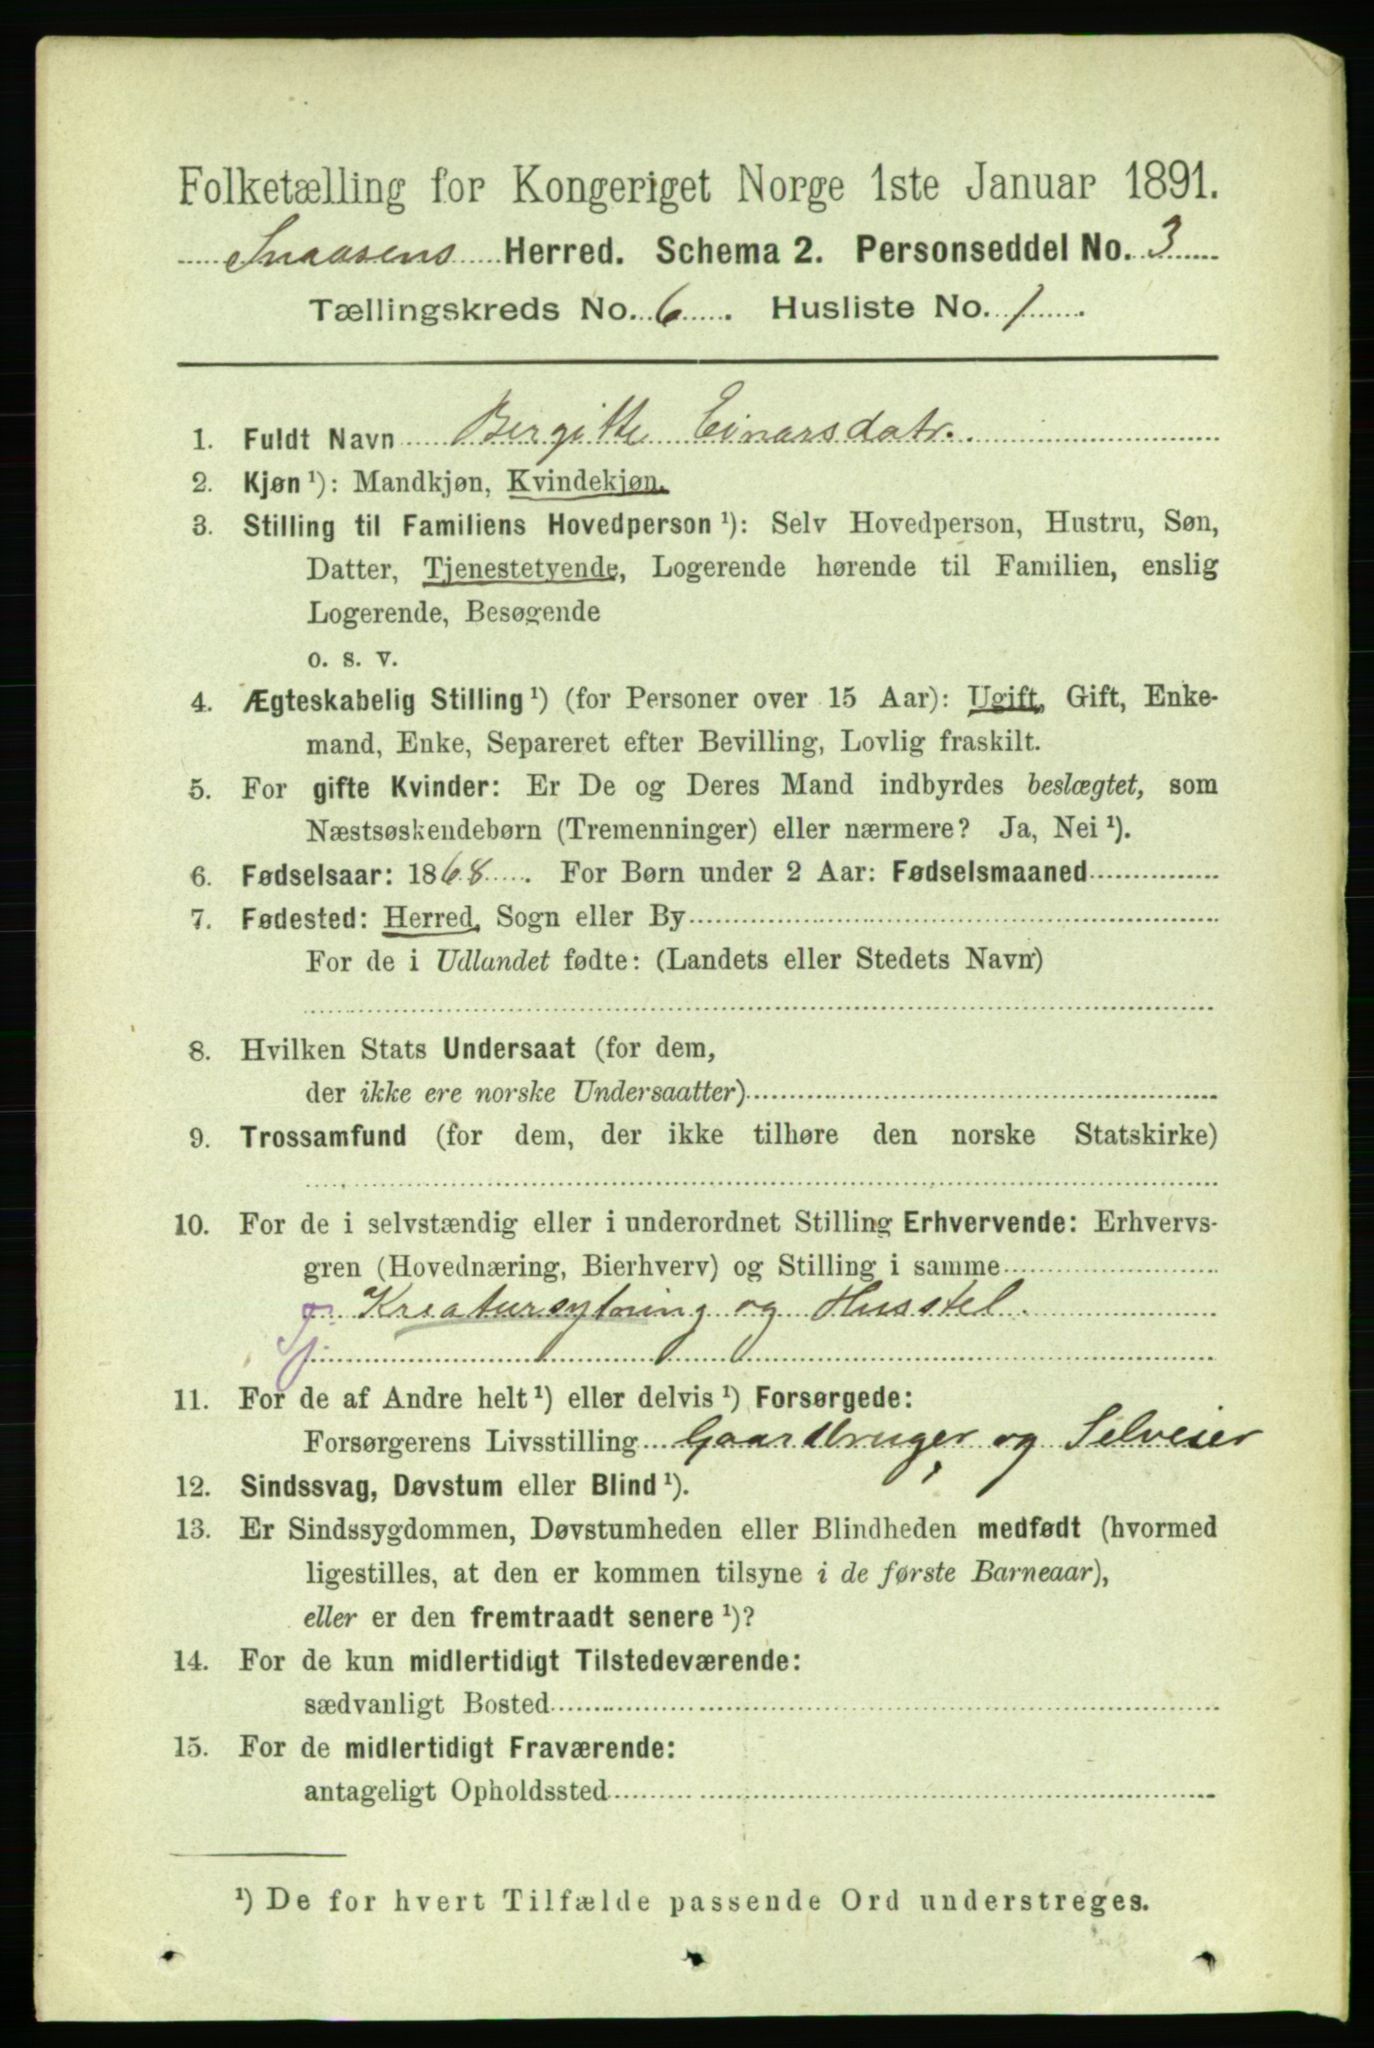 Folketælling for Kongeriget Norge 1ste Januar 1891.
Snaasens Herred. Schema 2. Personseddel No. 3
Tællingskreds No. 6. Husliste No. 1.
1. Fuldt Navn Bergitte Einarsdatr.
2. Kjøn ¹): Mandkjøn, Kvindekjøn.
3. Stilling til Familiens Hovedperson ¹): Selv Hovedperson, Hustru, Søn,
Datter, Tjenestetyende, Logerende hørende til Familien, enslig
Logerende, Besøgende
o. s. v.
4. Ægteskabelig Stilling ¹) (for Personer over 15 Aar): Ugift, Gift, Enke-
mand, Enke, Separeret efter Bevilling, Lovlig fraskilt.
5. For gifte Kvinder: Er De og Deres Mand indbyrdes beslægtet, som
Næstsøskendebørn (Tremenninger) eller nærmere? Ja, Nei ¹).
6. Fødselsaar: 1868. For Børn under 2 Aar: Fødselsmaaned
7. Fødested: Herred, Sogn eller By
For de i Udlandet fødte: (Landets eller Stedets Navn)
8. Hvilken Stats Undersaat (for dem,
der ikke ere norske Undersaatter)
9. Trossamfund (for dem, der ikke tilhøre den norske Statskirke)
10. For de i selvstændig eller i underordnet Stilling Erhvervende: Erhvervs-
gren (Hovednæring, Bierhverv) og Stilling i samme
Kreaturrygtning og Husstel.
Tj
11. For de af Andre helt ¹) eller delvis ¹) Forsørgede:
Forsørgerens Livsstilling Gaardbruger og Selveier
12. Sindssvag, Døvstum eller Blind ¹).
13. Er Sindssygdommen, Døvstumheden eller Blindheden medfødt (hvormed
ligestilles, at den er kommen tilsyne i de første Barneaar),
eller er den fremtraadt senere ¹)?
14. For de kun midlertidigt Tilstedeværende:
sædvanligt Bosted
15. For de midlertidigt Fraværende:
antageligt Opholdssted
¹) De for hvert Tilfælde passende Ord understreges.